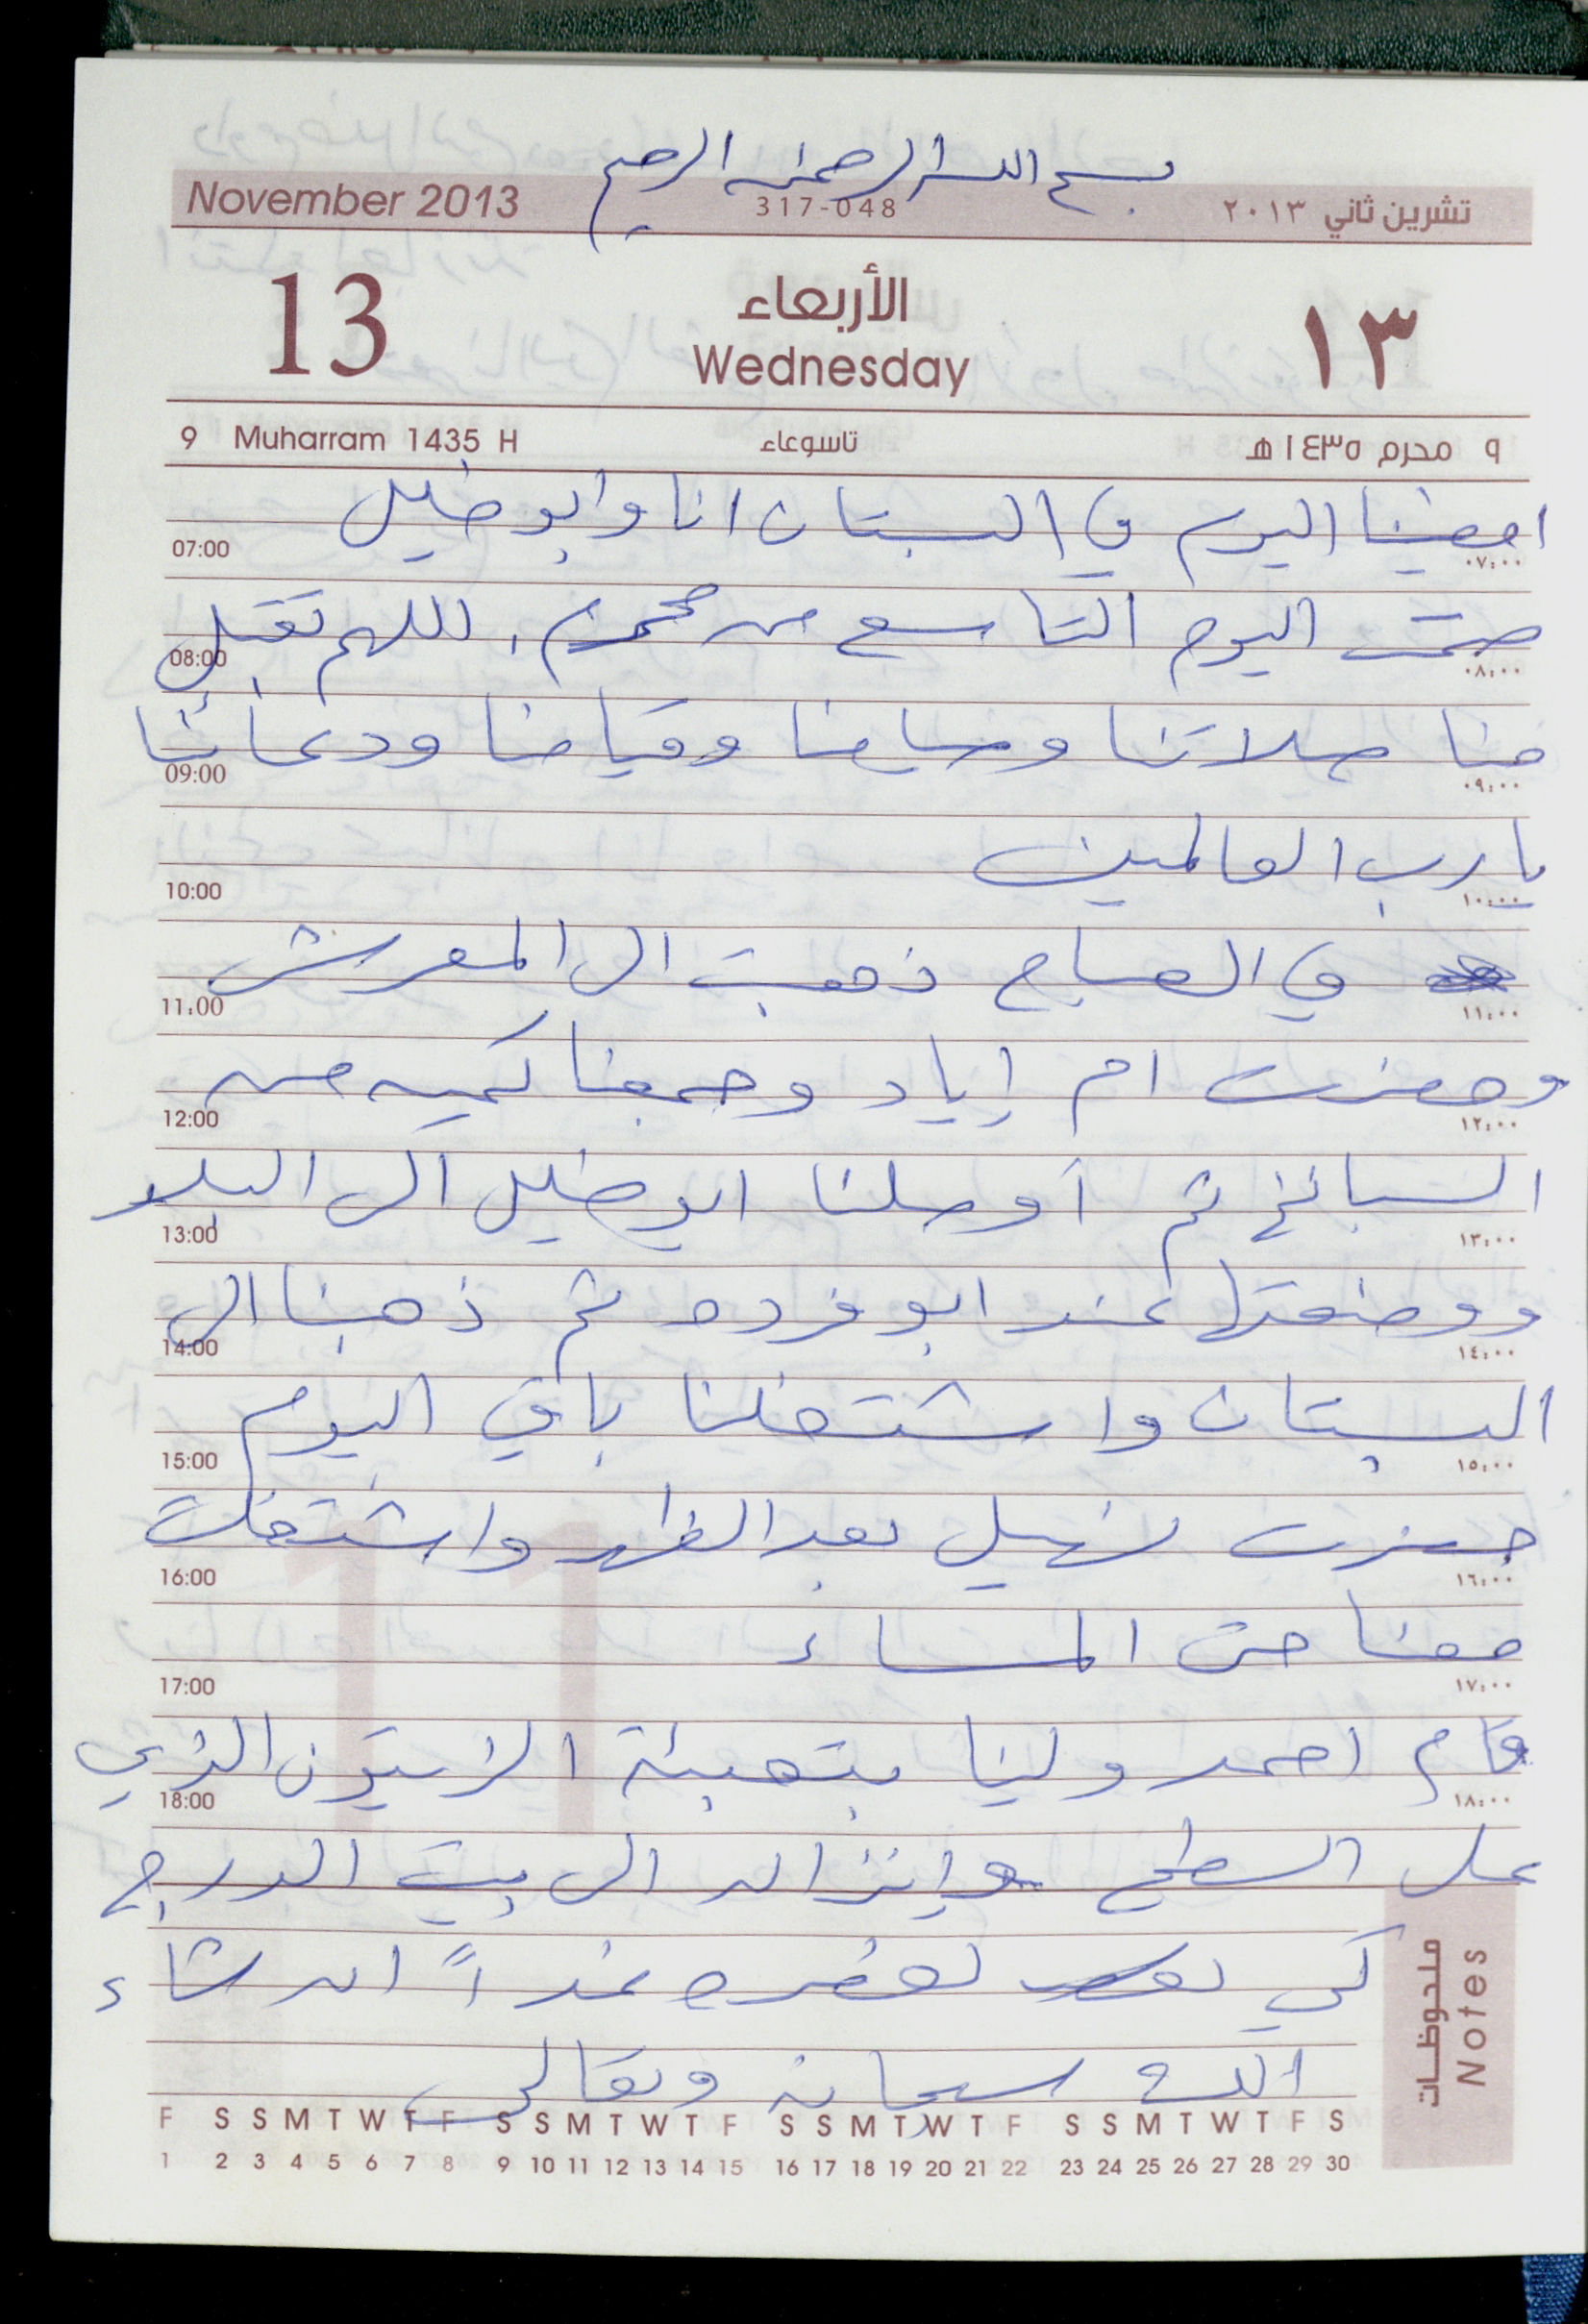 بسم الله الرحمن الرحيم
November 2013 317-048 تشرين ثاني ٢٠١٣
13 الأربعاء ١٣
Wednesday
9 Muharram 1435 H تاسوعاء ٩ محرم ١٤٣٥ هـ
امضينا اليوم في البستان انا وابو خليل
07:00 ٠٧:٠٠
صمت اليوم التاسع من محرم، اللهم تقبل
08:00 ٠٨:٠٠
منا صلاتنا وصيامنا وقيامنا ودعائنا
09:00 ٠٩:٠٠
يا رب العالمين
10:00 ١٠:٠٠
في الصباح ذهبت الى المعرش
11:00 ١١:٠٠
وحضرت ام إياد وجمعنا كميه من
12:00 ١٢:٠٠
السبانخ ثم أوصلنا ابو خليل الى البلد
13:00 ١٣:٠٠
ووضعتها عند ابو فرده ثم ذهبنا الى
14:00 ١٤:٠٠
البستان واشتغلنا باقي اليوم
15:00 ١٥:٠٠
حضرت نهيل بعد الظهر واشتغلت
16:00 ١٦:٠٠
معنا حتى المساء
17:00 ١٧:٠٠
قام احمد ولينا بتعبئة الزيتون الذي
18:00 ١٨:٠٠
على السطح وإنزاله الى بيت الدرج
كي نعصره غداً ان شاء
الله سبحانه وتعالى
ملحوظات
Notes
F S S M T W T F S S M T W T F S S M T W T F S S M T W T F S
1 2 3 4 5 6 7 8 9 10 11 12 13 14 15 16 17 18 19 20 21 22 23 24 25 26 27 28 29 30